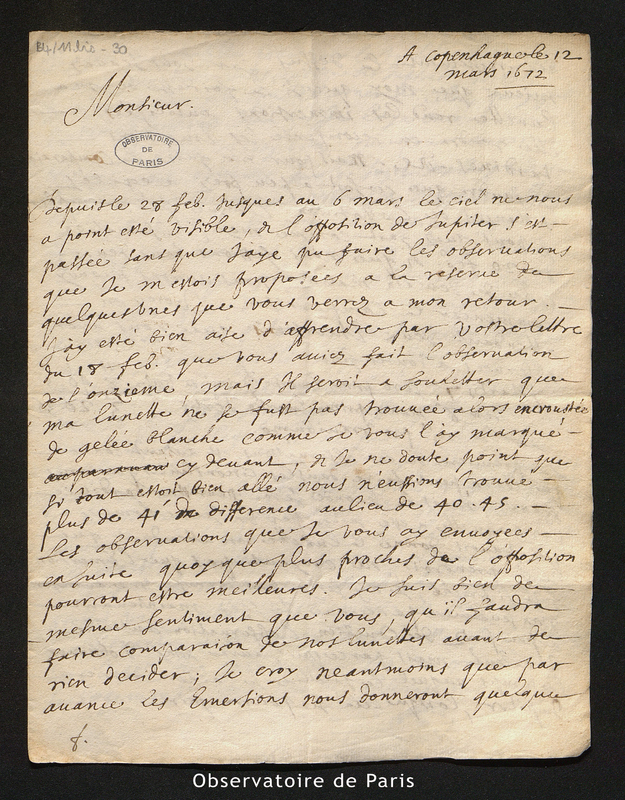 B4/11bis - 30
A Copenhague le 12
mars 1672
Monsieur.
OBSERVATOIRE
DE
PARIS
Depuis le 28 feb. Jusques au 6 mars le ciel ne nous
a point esté visible, & l'opposition de Jupiter s'est
passée sans que J'aye pu faire les observations
que Je m'estois proposées a la reserve de
quelques unes que vous verrez a mon retour.
J'ay esté bien aise d'apprendre par vostre lettre
du 18 feb. que vous aviez fait l'observation
de l'onzieme mais Il seroit a souhetter que
ma lunette ne se fust pas trouvée alors encroustée
de gelée blanche comme Je vous l'ay marqué
cy devant, & Je ne doute point que
si tout estoit bien allé nous n'eussions trouvé
plus de 41' de difference au lieu de 40.45.
Les observations que Je vous ay envoyées
en suite quoyque plus proches de l'opposition
pourront estre meilleures. Je suis bien de
mesme sentiment que vous, qu'il faudra
faire comparaison de nos lunettes avant de
rien decider; Je croy neantmoins que par
avance les Emersions nous donneront quelque
8.
Observatoire de Paris